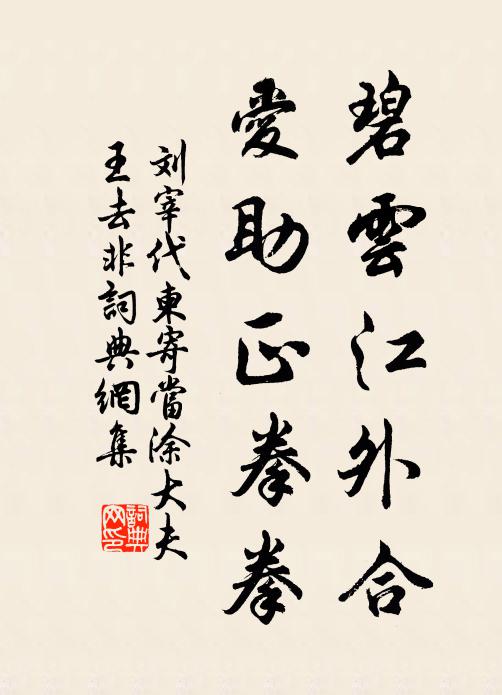 碧雲江外合
愛助正拳拳
刘宰代柬寄當涂大夫
王去非詞典網集
詞典网印